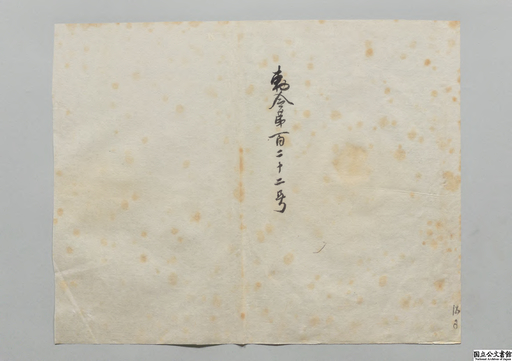 勅令第百二十二号
国立公文書館
National Archives of Japan